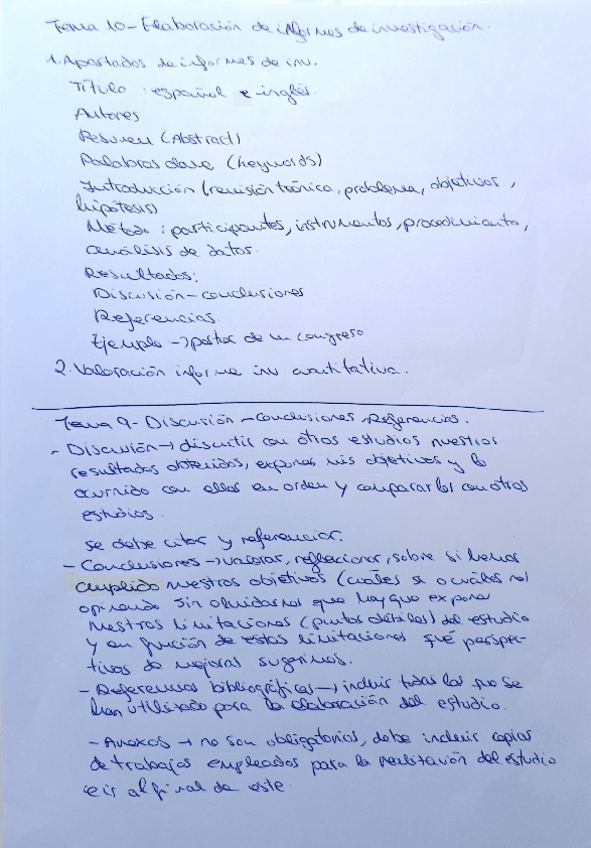 Tema 10 - Elaboración de informes de investigación.
1. Apartados de informes de inv.
Título : español e inglés.
Autores
Resumen (Abstract)
Palabras clave (keywords)
Introducción (revisión teórica, problema, objetivos,
hipótesis)
Método : participantes, instrumentos, procedimiento,
análisis de datos.
Resultados:
Discusión - conclusiones
Referencias.
Ejemplo → poster de un congreso
2. Valoración informe inv cuantitativa.
Tema 9 - Discusión - conclusiones, Referencias.
- Discusión → discutir con otros estudios nuestros
resultados obtenidos, exponer mis objetivos y lo
ocurrido con ellos en orden y compararlos con otros
estudios.
se debe citar y referenciar.
- Conclusiones → valorar, reflexionar, sobre si hemos
cumplido nuestros objetivos (cuáles si o cuáles no)
opinando sin olvidarnos que hay que exponer
nuestros limitaciones (puntos débiles) del estudio
y en función de estas limitaciones qué perspec-
tivas de mejoras sugerimos.
- Referencias bibliográficas → incluir todas las que se
han utilizado para la elaboración del estudio.
- Anexos → no son obligatorios, debe incluir copias
de trabajos empleados para la realización del estudio
e ir al final de este.